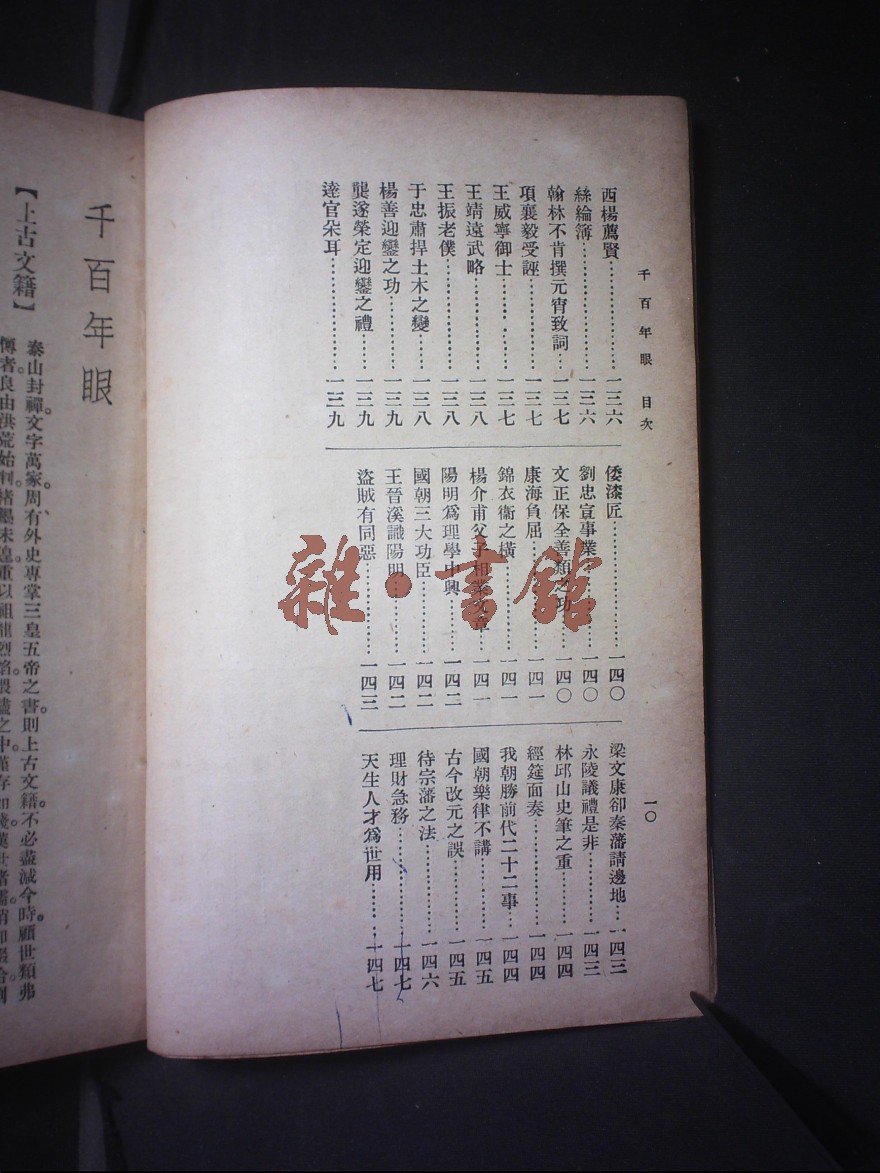 千百年眼 目次
一〇
西楊薦賢……一三六
絲綸簿……一三六
翰林不肯撰元宵致詞…一三七
項襄毅受誣……一三七
王威寧御士……一三七
王靖遠武略……一三八
王振老僕……一三八
于忠肅捍土木之變……一三八
楊善迎鑾之功……一三九
龔遂榮定迎鑾之禮……一三九
逵官朵耳……一三九
倭漆匠……一四〇
劉忠宣事業……一四〇
文正保全善類之功…一四〇
康海負屈……一四一
錦衣衞之橫……一四一
楊介甫父子相業文章…一四一
陽明爲理學中興……一四二
國朝三大功臣……一四二
王晉溪識陽明……一四二
盜賊有同惡……一四三
梁文康卻秦藩請邊地…一四三
永陵議禮是非……一四三
林邱山史筆之重……一四四
經筵面奏……一四四
我朝勝前代二十二事…一四四
國朝樂律不講……一四五
古今改元之誤……一四五
待宗藩之法……一四六
理財急務……一四七
天生人才爲世用……一四七
雜·書館
千百年眼
【上古文籍】
泰山封禪。文字萬家。周有外史專掌三皇五帝之書。則上古文籍。不必盡減今時。顧世類弗
傳者。良由洪荒始判。楮墨未遑。重以祖龍烈焰。煨燼之中。僅存如綫。漢世諸儒。稍加綴合。